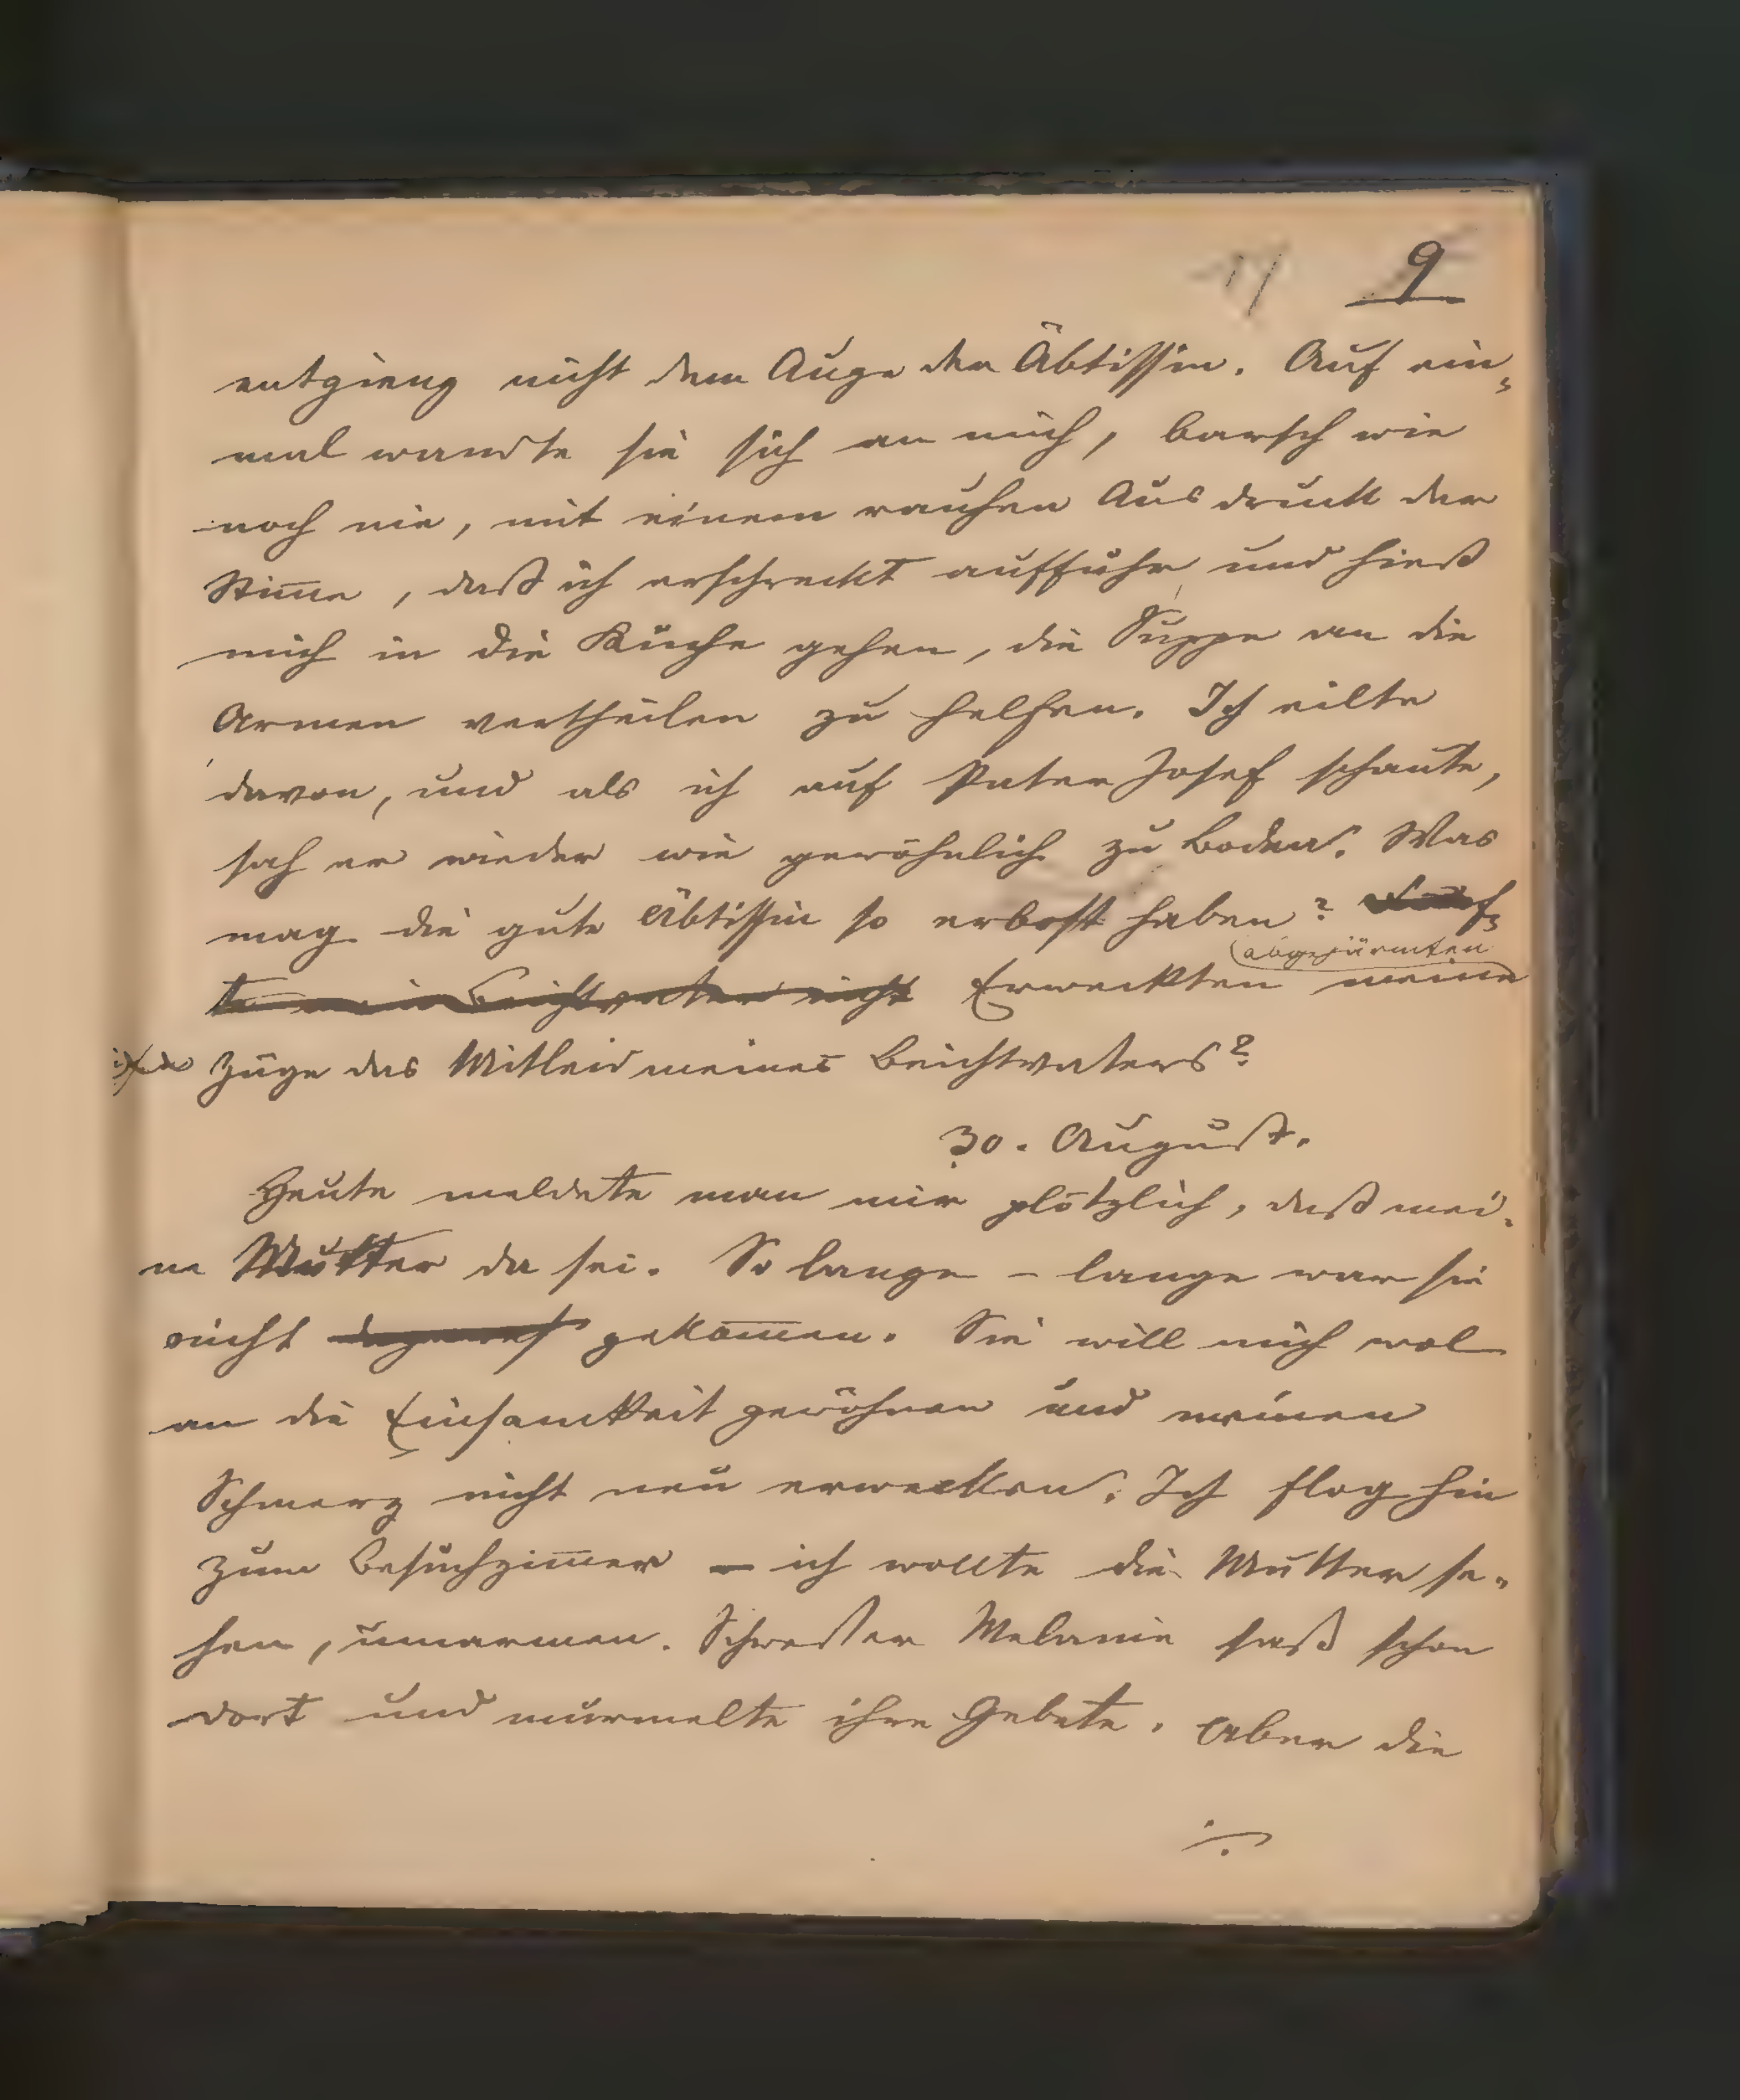 9
entgieng nicht dem Auge der Äbtissin. Auf ein-
mal wandte sie sich an mich, barsch wie
noch nie, mit einem rauhen Ausdruck der
Stim̅e, daß ich erschreckt auffuhr und hieß
mich in die Küche gehen, die Suppe an die
Armen vertheilen zu helfen. Ich eilte
davon, und als ich auf Pater Josef schaute,
sah er wieder wie gewöhnlich zu Boden. Was
mag die gute Äbtissin so erbost haben?
abgehärmten
te mein Beichtvater nicht Erweckten meine
Züge das Mitleid meines Beichtvaters?
30. August.
Heute meldete man mir plötzlich, daß mei-
ne Mutter da sei. So lange – lange war sie
nicht gekom̅en. Sie will mich wol
an die Einsamkeit gewöhnen und meinen
Schmerz nicht neu erwecken. Ich flog hin
zum Besuchzim̅er – ich wollte die Mutter se-
hen, umarmen. Schwester Melanie saß schon
dort und murmelte ihre Gebete. Aber die